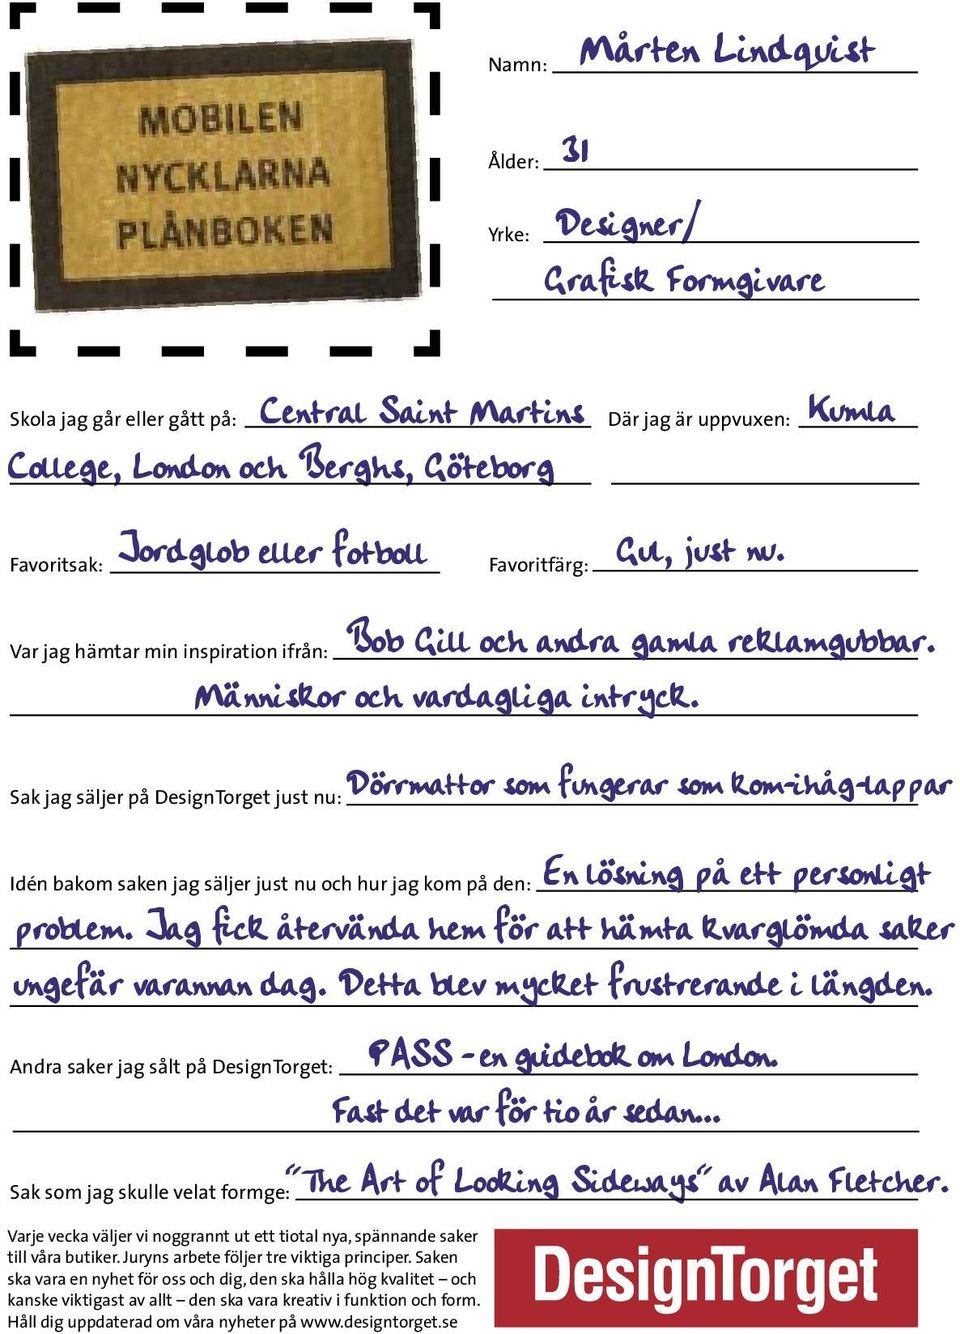 MOBILEN
NYCKLARNA
PLÅNBOKEN
Namn: Mårten Lindquist
Ålder: 31
Yrke: Designer/
Grafisk Formgivare
Skola jag går eller gått på: Central Saint Martins Där jag är uppvuxen: Kumla
College, London och Berghs, Göteborg
Favoritsak: Jordglob eller fotboll Favoritfärg: Gul, just nu.
Var jag hämtar min inspiration ifrån: Bob Gill och andra gamla reklamgubbar.
Människor och vardagliga intryck.
Sak jag säljer på DesignTorget just nu: Dörrmattor som fungerar som kom-ihåg-lappar
Idén bakom saken jag säljer just nu och hur jag kom på den: En lösning på ett personligt
problem. Jag fick återvända hem för att hämta kvarglömda saker
ungefär varannan dag. Detta blev mycket frustrerande i längden.
Andra saker jag sålt på DesignTorget: PASS - en guidebok om London.
Fast det var för tio år sedan...
Sak som jag skulle velat formge: "The Art of Looking Sideways" av Alan Fletcher.
Varje vecka väljer vi noggrannt ut ett tiotal nya, spännande saker
till våra butiker. Juryns arbete följer tre viktiga principer. Saken
ska vara en nyhet för oss och dig, den ska hålla hög kvalitet – och
kanske viktigast av allt – den ska vara kreativ i funktion och form.
Håll dig uppdaterad om våra nyheter på www.designtorget.se
DesignTorget